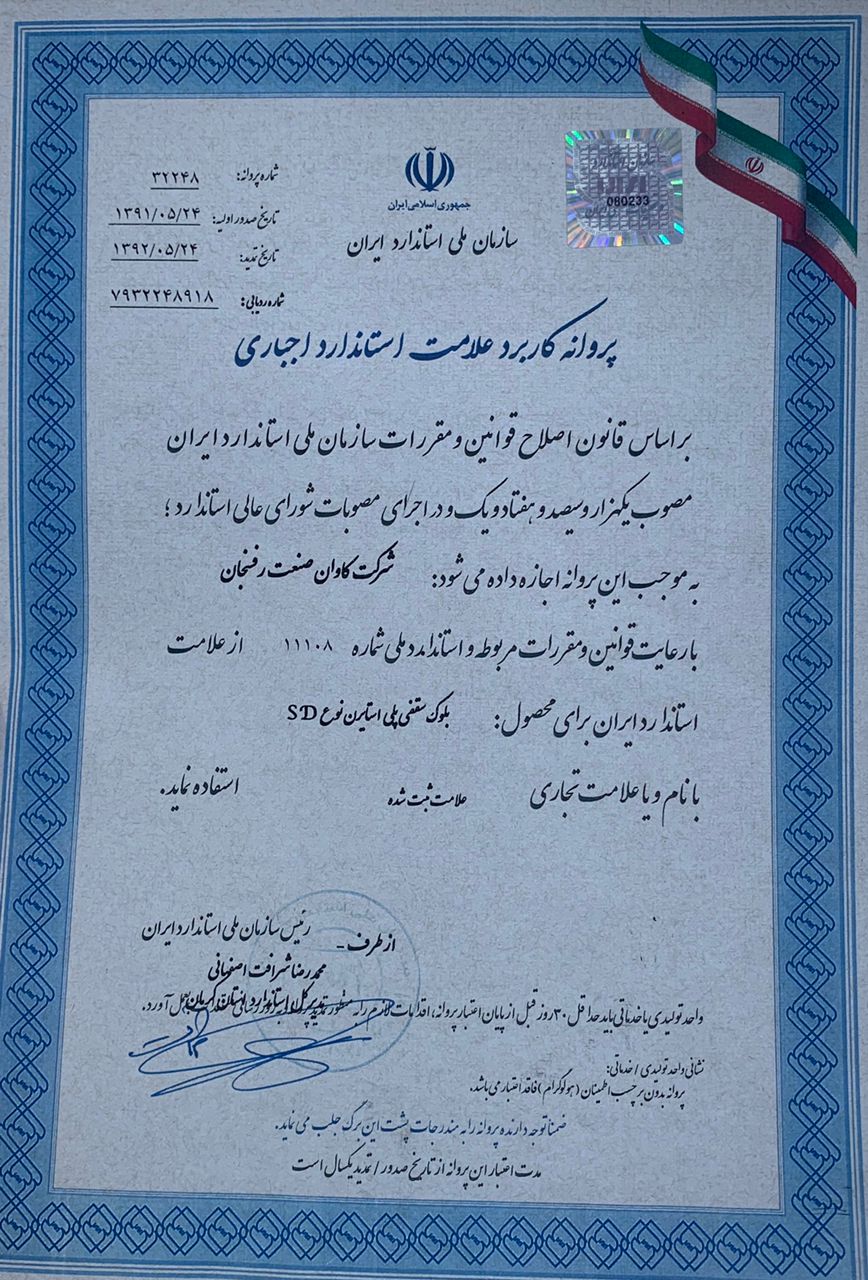 جمهوری اسلامی ایران
سازمان ملی استاندارد ایران
080233
شماره پروانه: ۳۲۲۴۸
تاریخ صدور اولیه: ۱۳۹۱/۰۵/۲۴
تاریخ تمدید: ۱۳۹۲/۰۵/۲۴
شماره ردیابی: ۷۹۳۲۲۴۸۹۱۸
پروانه کاربرد علامت استاندارد اجباری
بر اساس قانون اصلاح قوانین و مقررات سازمان ملی استاندارد ایران
مصوب یکهزار و سیصد و هفتاد و یک و در اجرای مصوبات شورای عالی استاندارد ؛
به موجب این پروانه اجازه داده می شود: شرکت کاوان صنعت رفسنجان
با رعایت قوانین و مقررات مربوطه و استاندارد ملی شماره ۱۱۱۰۸ از علامت
استاندارد ایران برای محصول: بلوک سقفی پلی استایرن نوع SD
با نام و یا علامت تجاری علامت ثبت شده استفاده نماید.
رئیس سازمان ملی استاندارد ایران
از طرف -
محمدرضا شرافت اصفهانی
مدیرکل استاندارد استان کرمان
واحد تولیدی یا خدماتی باید حداقل ۳۰ روز قبل از پایان اعتبار پروانه، اقدامات لازم را به منظور تمدید بعمل آورد.
نشانی واحد تولیدی / خدماتی:
پروانه بدون برچسب اطمینان (هولوگرام) فاقد اعتبار می باشد.
ضمنا توجه دارنده پروانه را به مندرجات پشت این برگ جلب می نماید.
مدت اعتبار این پروانه از تاریخ صدور / تمدید یکسال است